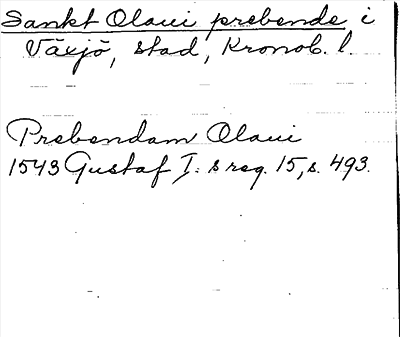 Sankt Olaui prebende i
Växjö, stad, Kronob. l.
Prebendam Olaui
1543 Gustaf I:s reg. 15, s. 493.